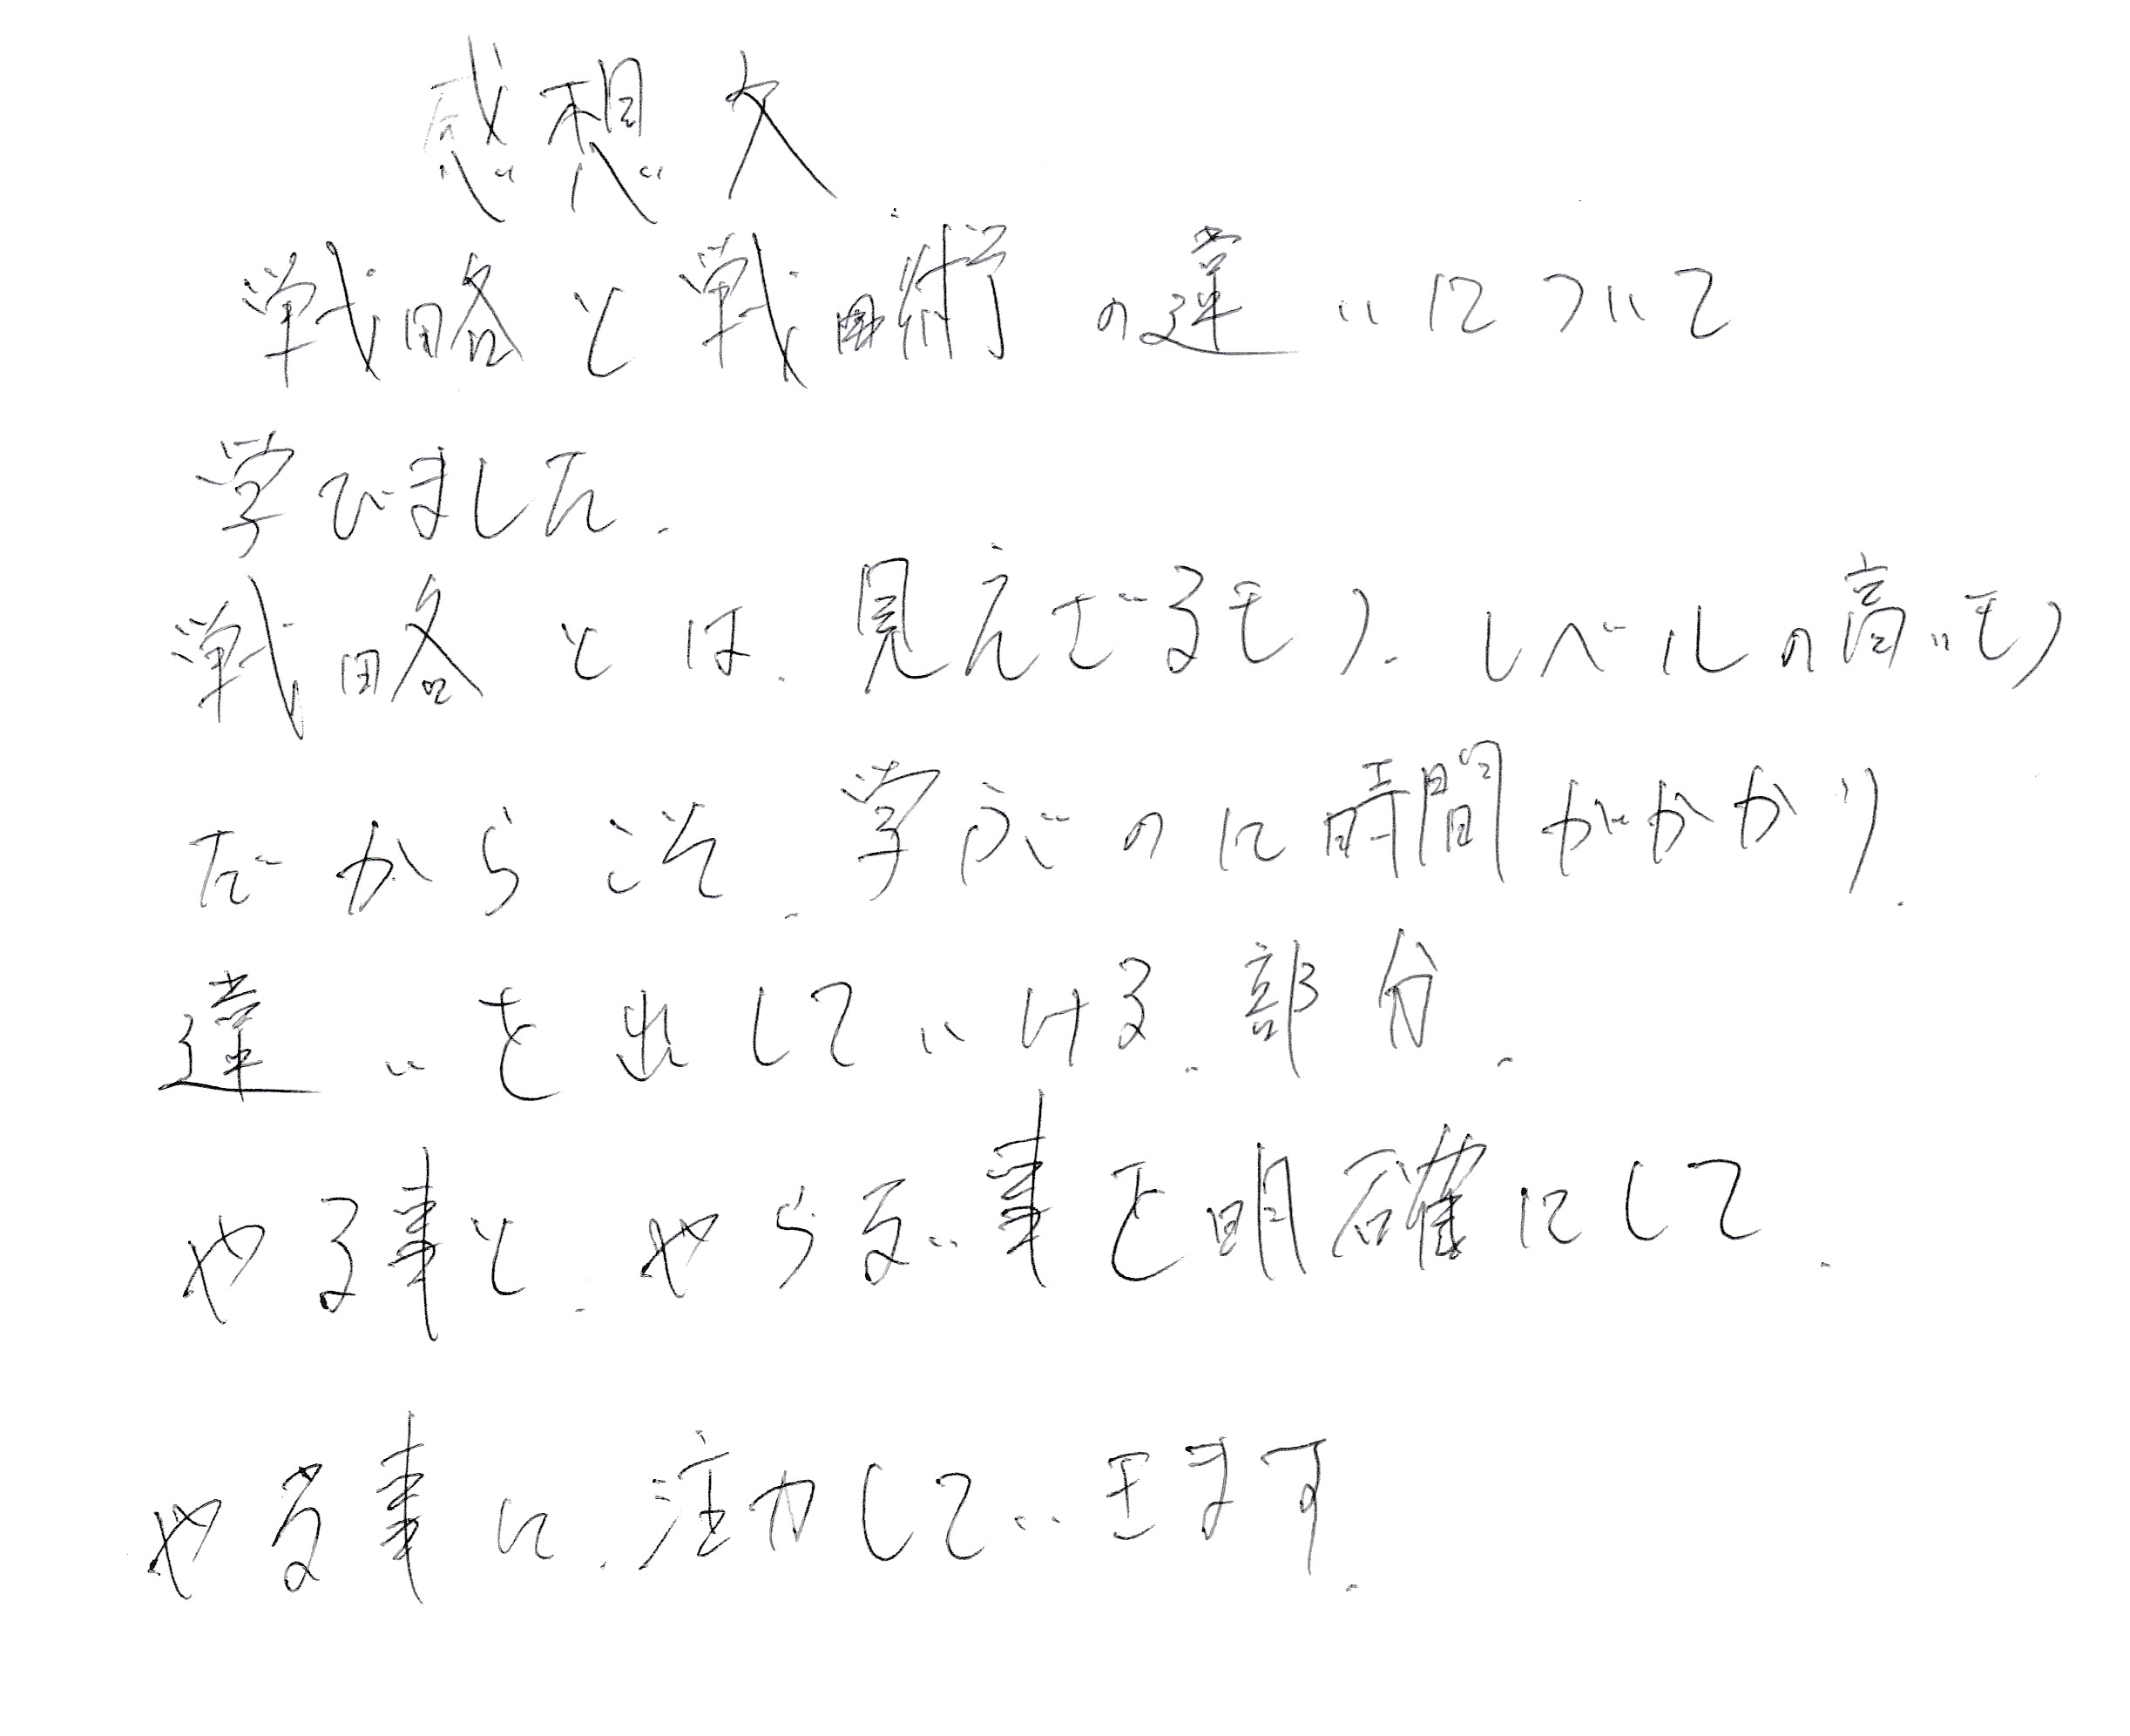 感想文
戦略と戦術の違いについて
学びました.
戦略とは、見えざるモノ、レベルの高いモノ
だからこそ、学ぶのに時間がかかり、
違いを出していける、部分.
やる事と、やらない事を明確にして、
やる事に、注力していきます.